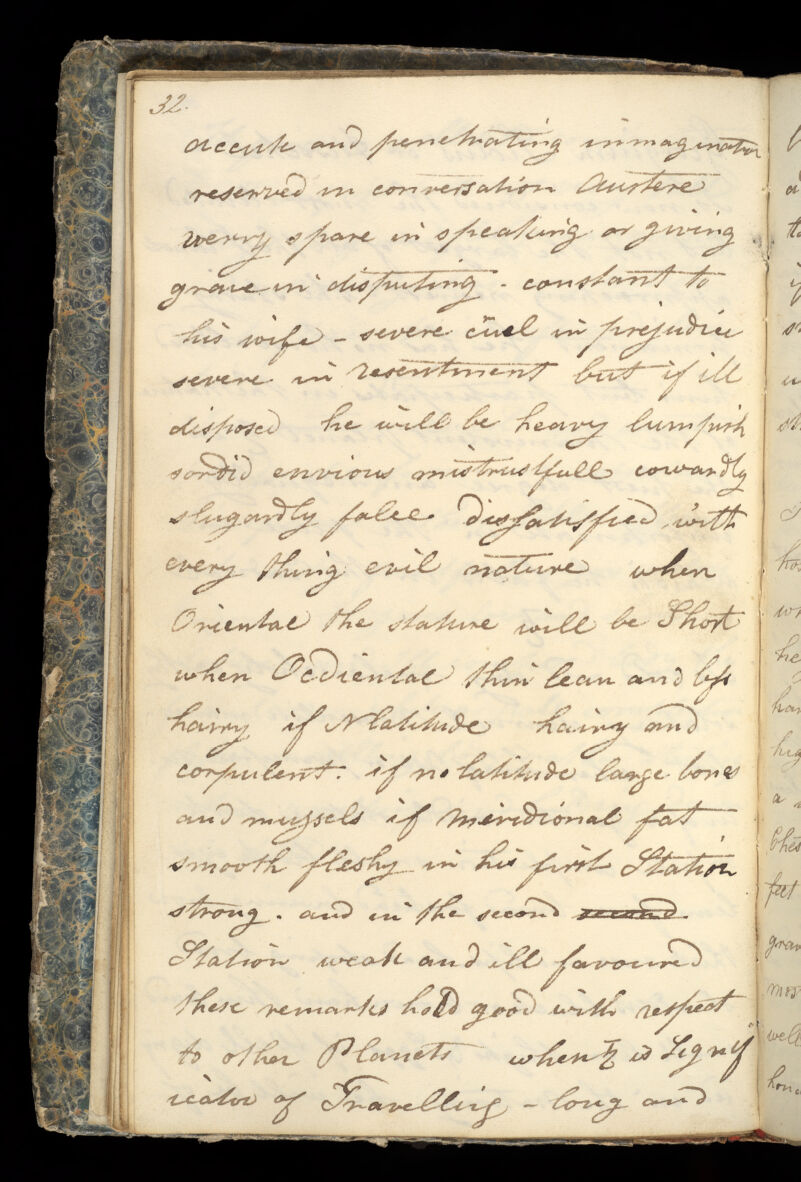 32.
accute and penetrating inmagination
reserved in conversation Austere
werry spare in speaking or giving
grave in disputing - constant to
his wife - severe cruel in prejudice
severe in resentment but if ill
disposed he will be heavy lumpish
sordid envious mistrustfull cowardly
slugardly false dissatisfied with
every thing evil nature when
Oriental the stature will be Short
when Ocdiental thin lean and less
hairy if N latitude hairy and
corpulent. if no latitude large bones
and mussels if meridional fat
smooth fleshy in his first Station
strong. and in the second second
Station weak and ill favoured
these remarks hold good with respect
to other Planets when ♄ is Signif
icator of Travelling - long and